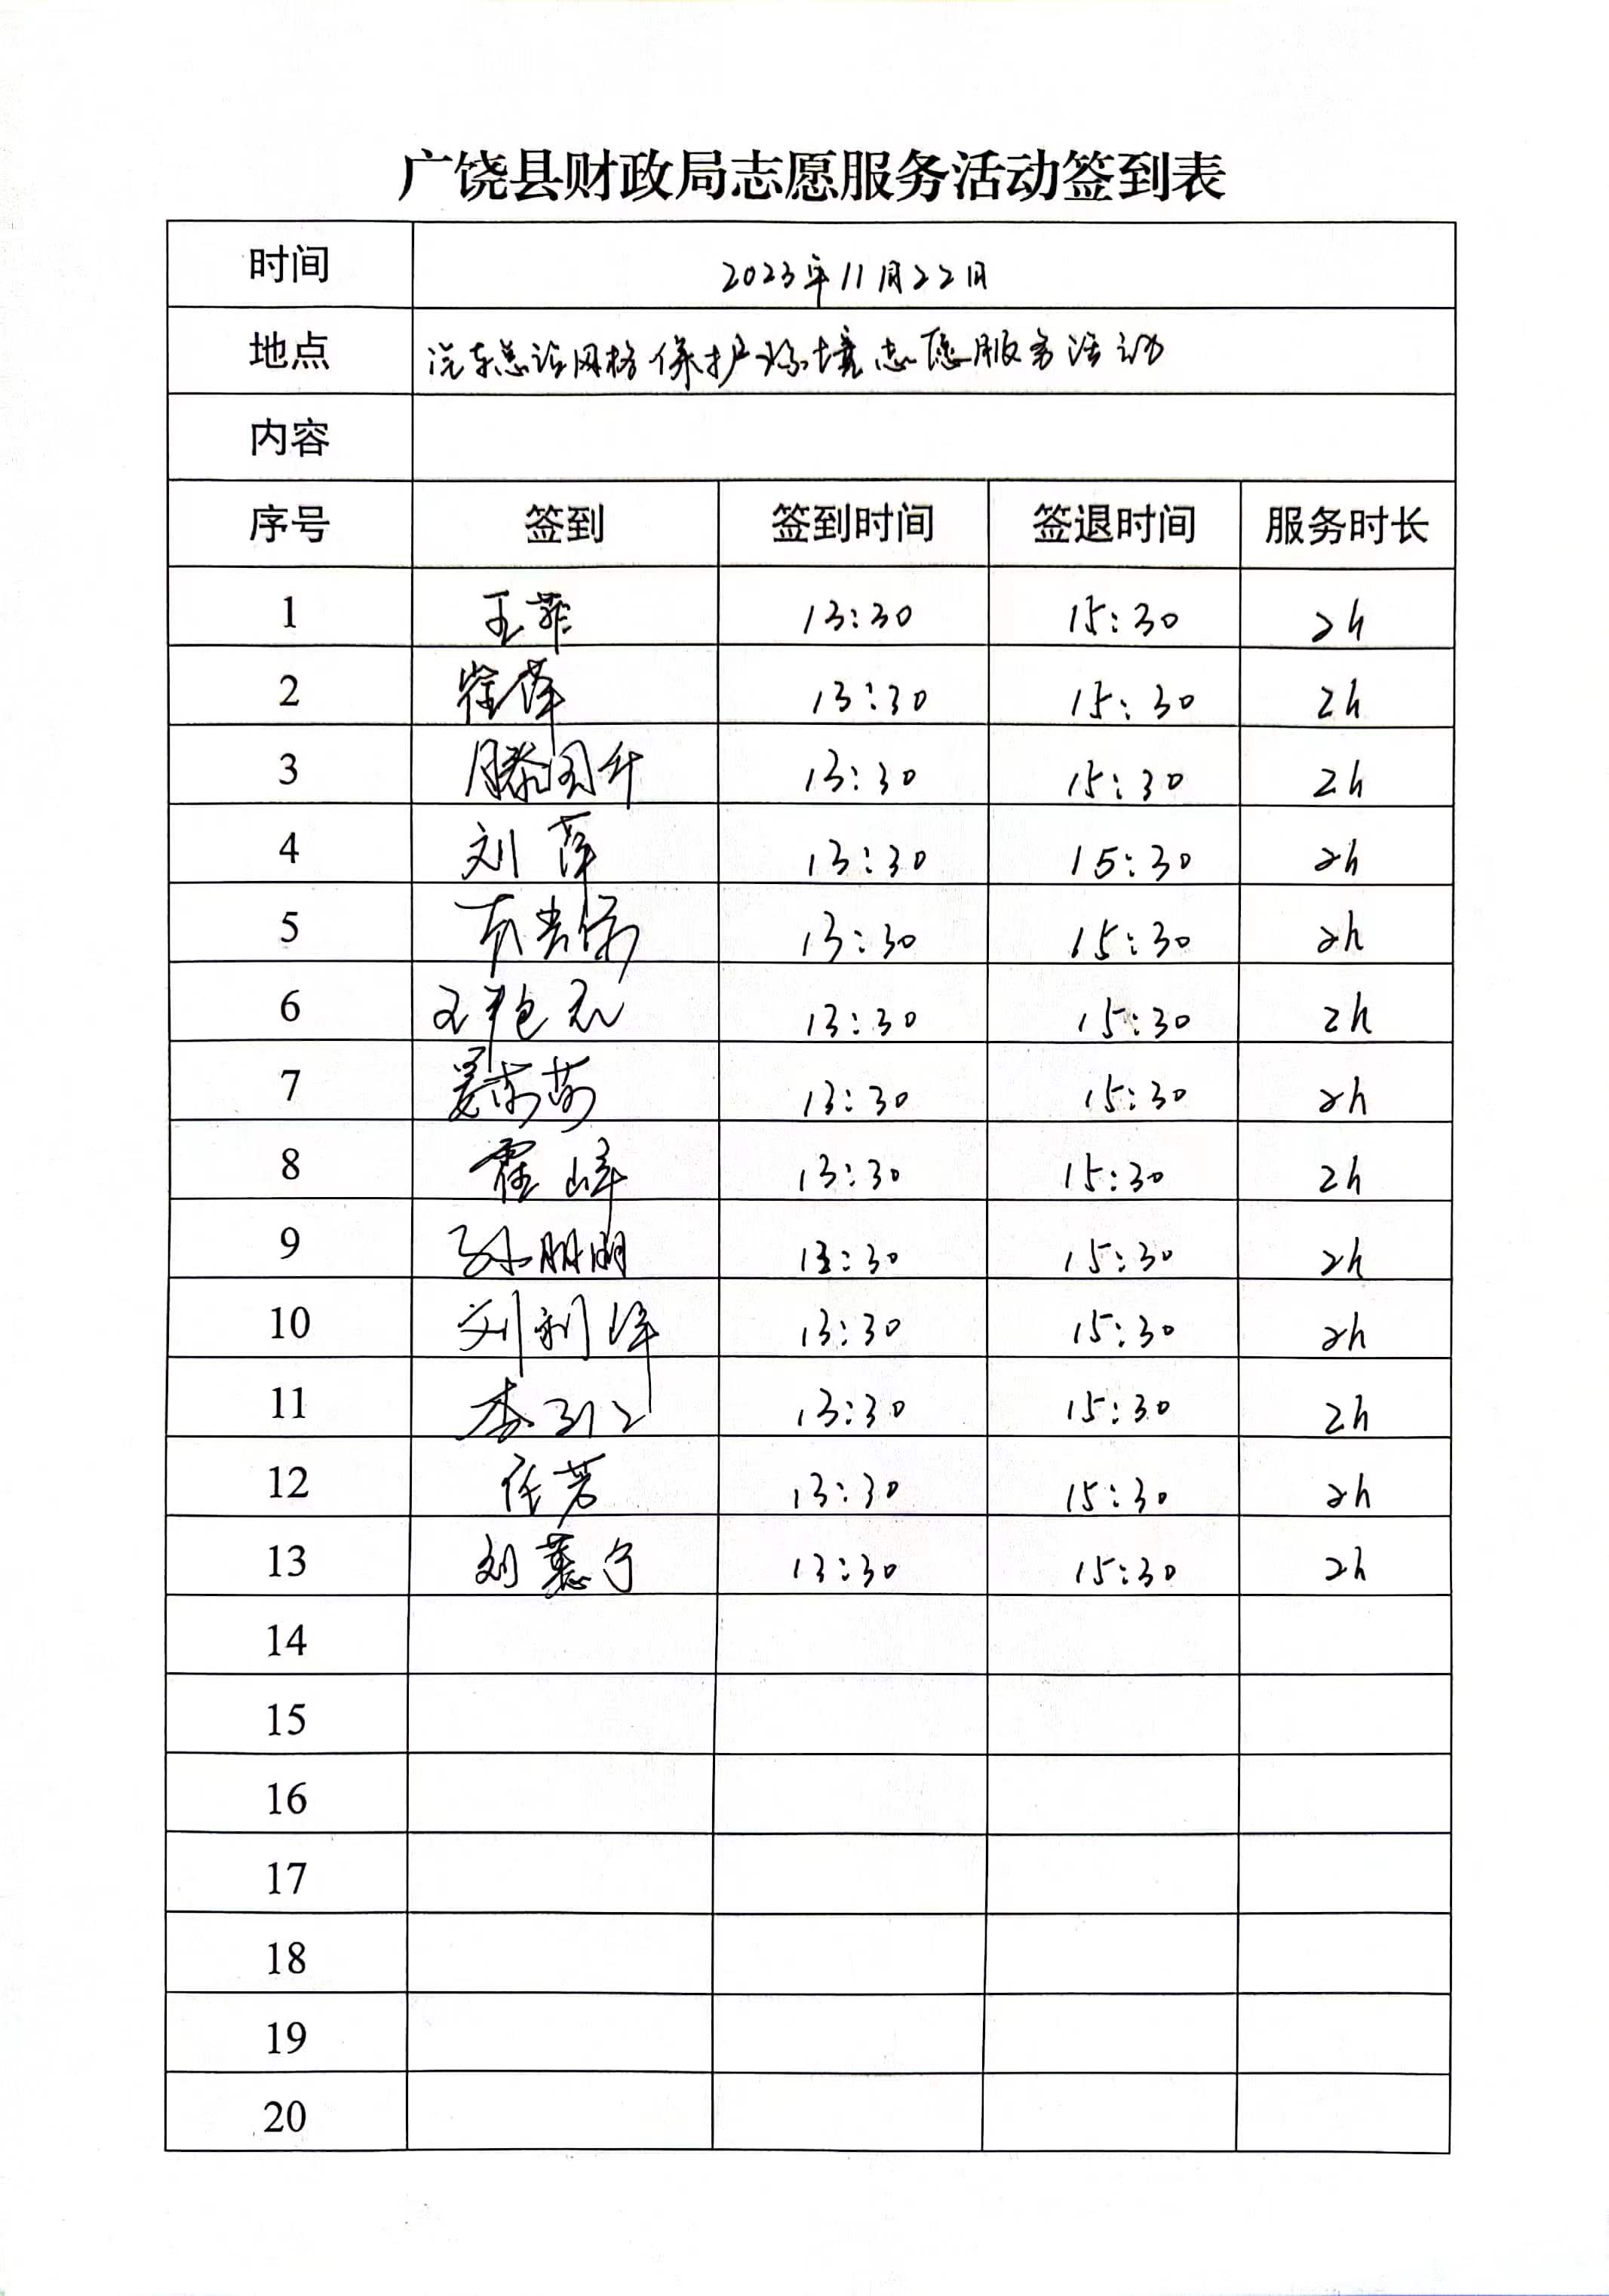 广饶县财政局志愿服务活动签到表
时间 2023年11月22日
地点 汽车总站网格保护环境志愿服务活动
内容
序号 签到 签到时间 签退时间 服务时长
1 王菲 13:30 15:30 2h
2 徐萍 13:30 15:30 2h
3 滕国升 13:30 15:30 2h
4 刘萍 13:30 15:30 2h
5 13:30 15:30 2h
6 王艳 13:30 15:30 2h
7 13:30 15:30 2h
8 霍峰 13:30 15:30 2h
9 孙朋朋 13:30 15:30 2h
10 刘利峰 13:30 15:30 2h
11 李 13:30 15:30 2h
12 任芳 13:30 15:30 2h
13 刘慧宁 13:30 15:30 2h
14
15
16
17
18
19
20